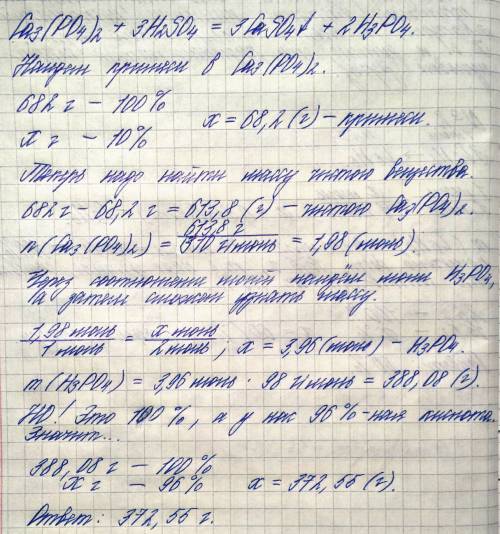 Ca₃(PO₄)₂ + 3H₂SO₄ = 3CaSO₄↓ + 2H₃PO₄.
Найдём примеси в Ca₃(PO₄)₂.
682 г – 100%
x г – 10%
x = 68,2 (г) – примеси.
Теперь надо найти массу чистого вещества.
682 г – 68,2 г = 613,8 (г) – чистого Ca₃(PO₄)₂.
n(Ca₃(PO₄)₂) = 613,8 г / 310 г/моль = 1,98 (моль).
Через соотношение молей найдём моли H₃PO₄,
а затем сможем узнать массу.
1,98 моль / 1 моль = x моль / 2 моль ; x = 3,96 (моль) – H₃PO₄.
m(H₃PO₄) = 3,96 моль · 98 г/моль = 388,08 (г).
НО! Это 100%, а у нас 96%-ная кислота.
Значит...
388,08 г – 100%
x г – 96%
x = 372,55 (г).
Ответ: 372,55 г.